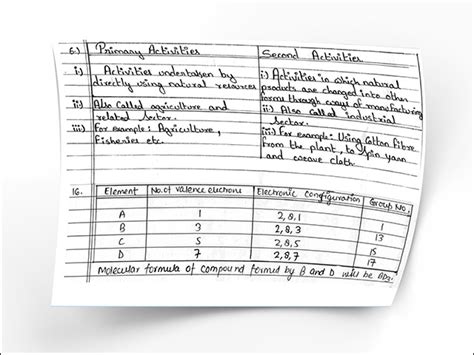 6.) Primary Activities Second Activities
i) Activities undertaken by directly using natural resources
i) Activities in which natural products are changed into other forms through ways of manufacturing
ii) Also Called agriculture and related sector.
ii) Also Called industrial sector.
iii) For example: Agriculture, Fisheries etc.
iii) For example: Using Cotton Fibre from the plant, to spin yarn and weave cloth.
16.
Element No. of valence electrons Electronic configuration Group No.
A 1 2,8,1 1
B 3 2,8,3 13
C 5 2,8,5 15
D 7 2,8,7 17
Molecular formula of compound formed by B and D will be BD3.